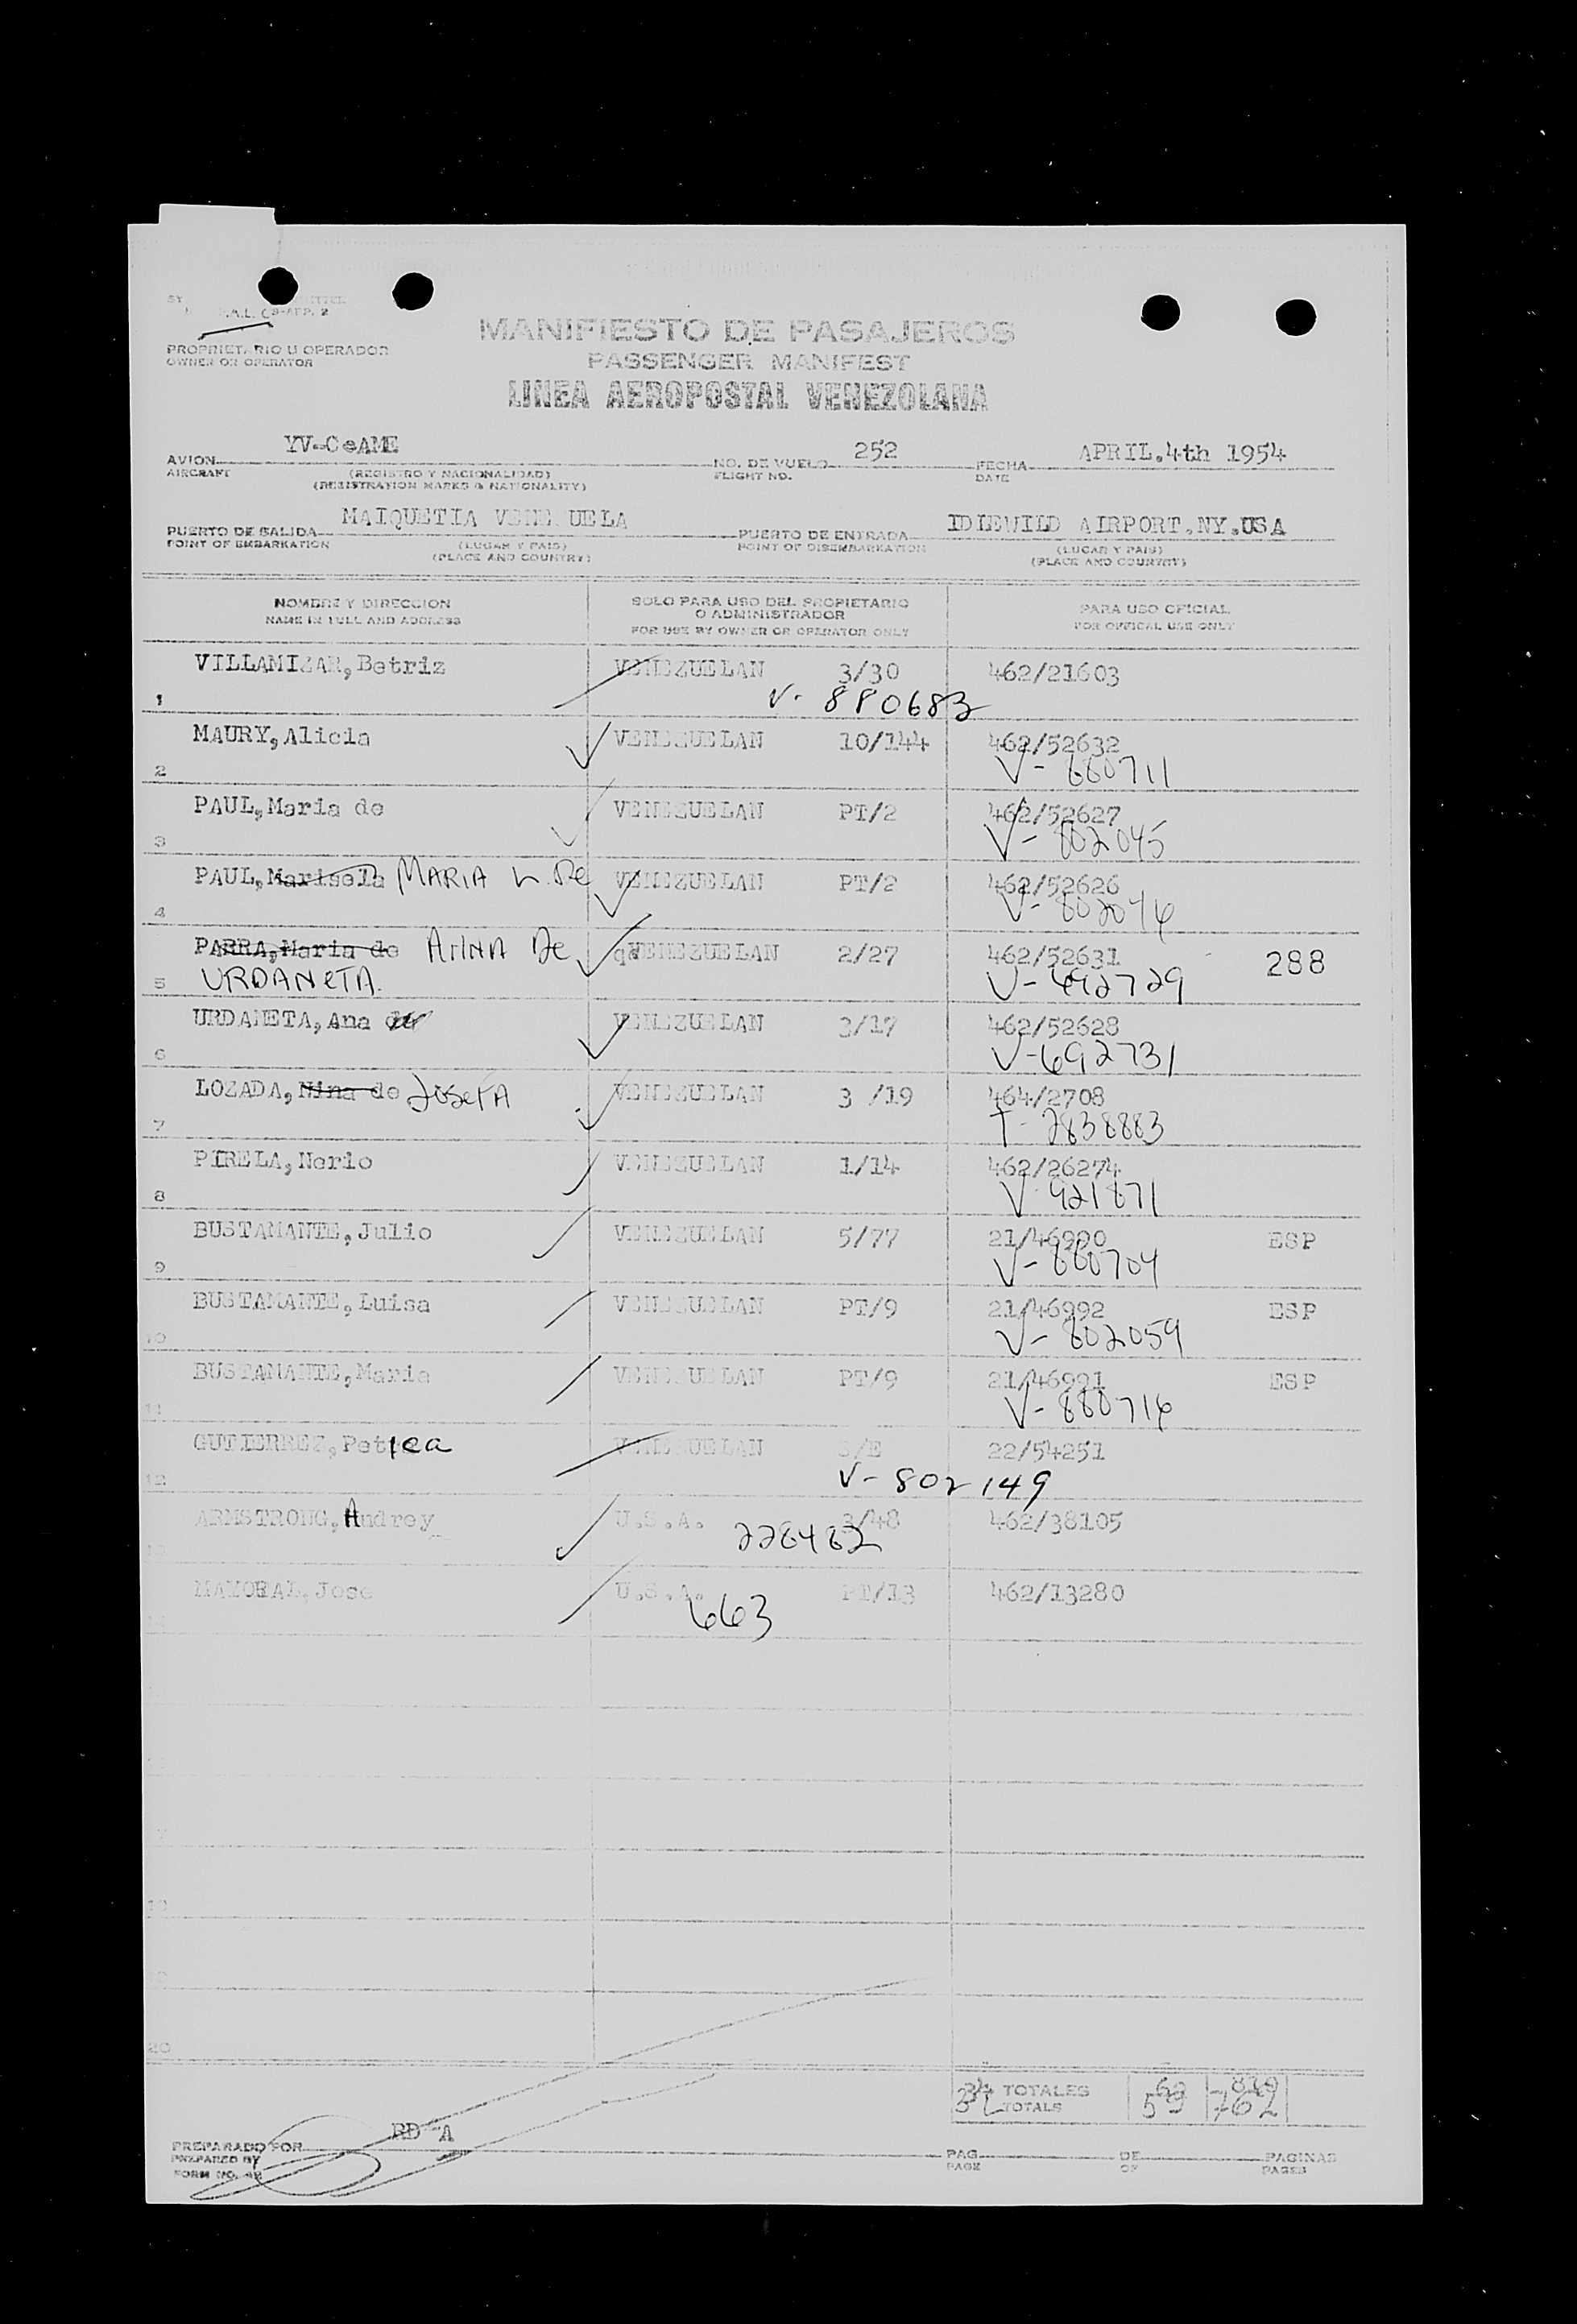 MANIFIESTO DE PASAJEROS
PASSENGER MANIFEST
LINEA AEROPOSTAL VENEZOLANA
PROPRIETARIO U OPERADOR
OWNER OR OPERATOR
AVION YV-C-AME NO. DE VUELO 252 FECHA APRIL.4th 1954
AIRCRAFT (REGISTRO Y NACIONALIDAD) FLIGHT NO. DATE
(REGISTRATION MARKS & NATIONALITY)
PUERTO DE SALIDA MAIQUETIA VENEZUELA PUERTO DE ENTRADA IDLEWILD AIRPORT,NY,USA
POINT OF EMBARKATION (LUGAR Y PAIS) POINT OF DISEMBARKATION (LUGAR Y PAIS)
(PLACE AND COUNTRY) (PLACE AND COUNTRY)
NOMBRE Y DIRECCION SOLO PARA USO DEL PROPIETARIO O ADMINISTRADOR PARA USO OFICIAL
NAME IN FULL AND ADDRESS FOR USE BY OWNER OR OPERATOR ONLY FOR OFFICAL USE ONLY
VILLAMIZAR,Betriz VENEZUELAN 3/30 462/21603
1 V- 880683
MAURY,Alicia VENEZUELAN 10/144 462/52632
2 V- 880711
PAUL,Maria de VENEZUELAN PT/2 462/52627
3 V- 802045
PAUL,Marisela MARIA L. De VENEZUELAN PT/2 462/52626
4 V- 802046
PARRA,Maria de ANNA De VENEZUELAN 2/27 462/52631 288
5 URDANETA. V- 692729
URDANETA,Ana de VENEZUELAN 3/17 462/52628
6 V-692731
LOZADA,Nina de JOSEFA VENEZUELAN 3 /19 464/2708
7 T- 2838883
PIRELA,Nerio VENEZUELAN 1/14 462/26274
8 V 921871
BUSTAMANTE,Julio VENEZUELAN 5/77 21/46990 ESP
9 V- 880704
BUSTAMANTE,Luisa VENEZUELAN PT/9 21/46992 ESP
10 V- 802059
BUSTAMANTE,Maria VENEZUELAN PT/9 21/46991 ESP
11 V- 880716
GUTIERREZ,Petrea VENEZUELAN S/E 22/54251
12 V- 802149
ARMSTRONG,Andrey U.S.A. 3/48 462/38105
13 228482
MAYORAL,Jose U.S.A. PT/13 462/13280
14 663
20
TOTALES
TOTALS 59 762
PREPARADO POR PAG. DE PAGINAS
PREPARED BY PAGE OF PAGES
FORM NO.